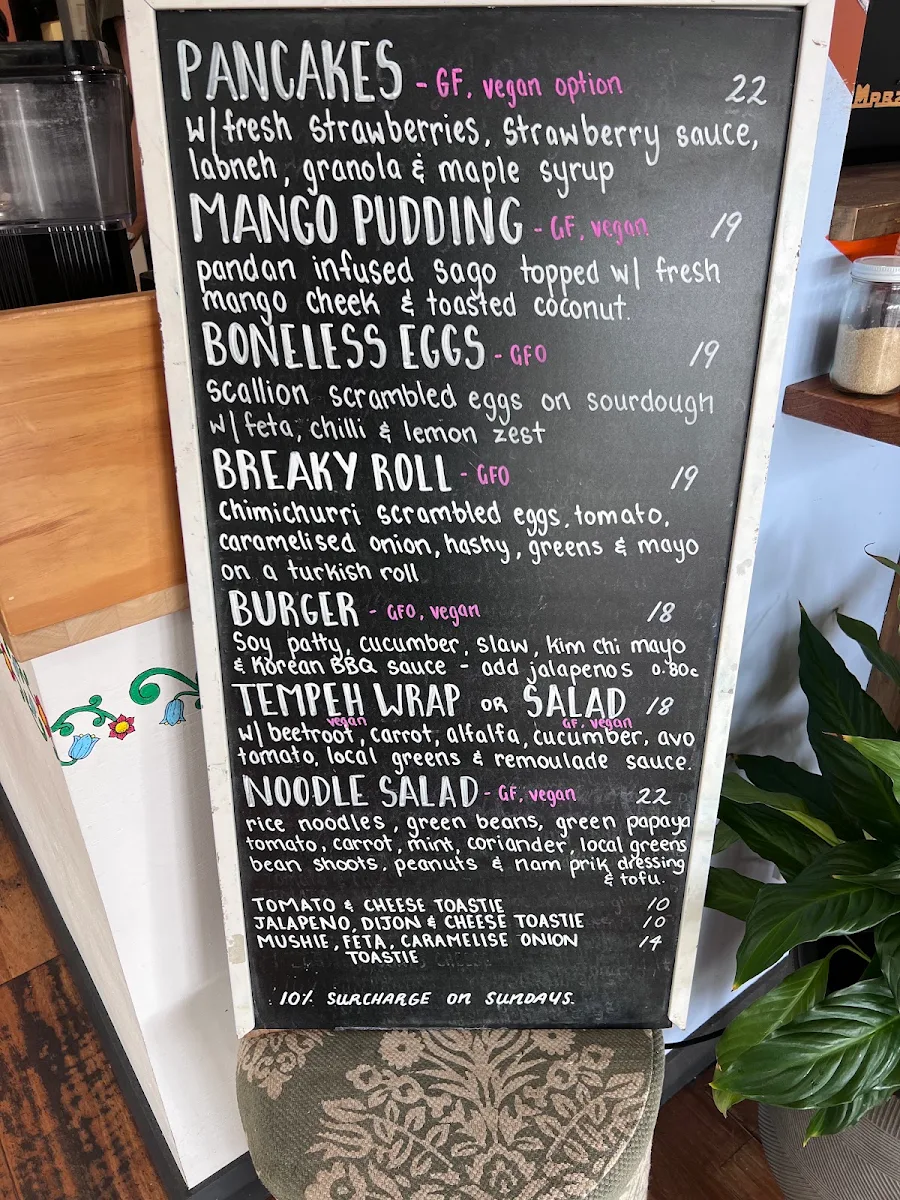 PANCAKES - GF, vegan option 22
w/ fresh strawberries, strawberry sauce,
labneh, granola & maple syrup
MANGO PUDDING - GF, vegan 19
pandan infused sago topped w/ fresh
mango cheek & toasted coconut.
BONELESS EGGS - GFO 19
scallion scrambled eggs on sourdough
w/ feta, chilli & lemon zest
BREAKY ROLL - GFO 19
chimichurri scrambled eggs, tomato,
caramelised onion, hashy, greens & mayo
on a turkish roll
BURGER - GFO, vegan 18
Soy patty, cucumber, slaw, kim chi mayo
& Korean BBQ sauce - add jalapenos 0.80c
TEMPEH WRAP OR SALAD 18
vegan GF, vegan
w/ beetroot, carrot, alfalfa, cucumber, avo
tomato, local greens & remoulade sauce.
NOODLE SALAD - GF, vegan 22
rice noodles, green beans, green papaya
tomato, carrot, mint, coriander, local greens
bean shoots, peanuts & nam prik dressing
& tofu.
TOMATO & CHEESE TOASTIE 10
JALAPENO, DIJON & CHEESE TOASTIE 10
MUSHIE, FETA, CARAMELISE ONION 14
TOASTIE
10% SURCHARGE on SUNDAYS.